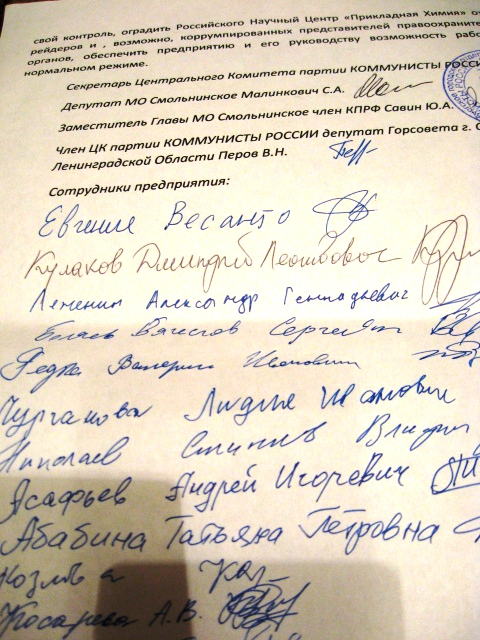 свой контроль, оградить Российского Научный Центр «Прикладная Химия» о
рейдеров и , возможно, коррумпированных представителей правоохраните
органов, обеспечить предприятию и его руководству возможность рабо
нормальном режиме.
Секретарь Центрального Комитета партии КОММУНИСТЫ РОССИ
Депутат МО Смольнинское Малинкович С.А.
Заместитель Главы МО Смольнинское член КПРФ Савин Ю.А.
Член ЦК партии КОММУНИСТЫ РОССИИ депутат Горсовета г. С
Ленинградской Области Перов В.Н.
Сотрудники предприятия:
Евгение Весанто
Кулаков Дмитрий Леонидович
Александр Геннадьевич
Сергеевич
Валерий Иванович
Николаев
Асафьев Андрей Игоревич
Абабина Татьяна Петровна
Козлова
Косарева А.В.